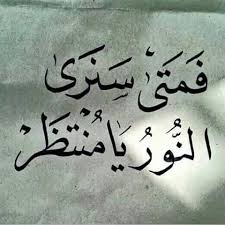 فَمَتىٰ سَنَرَىٰ
النُّورُ يَا مُنْتَظَرْ